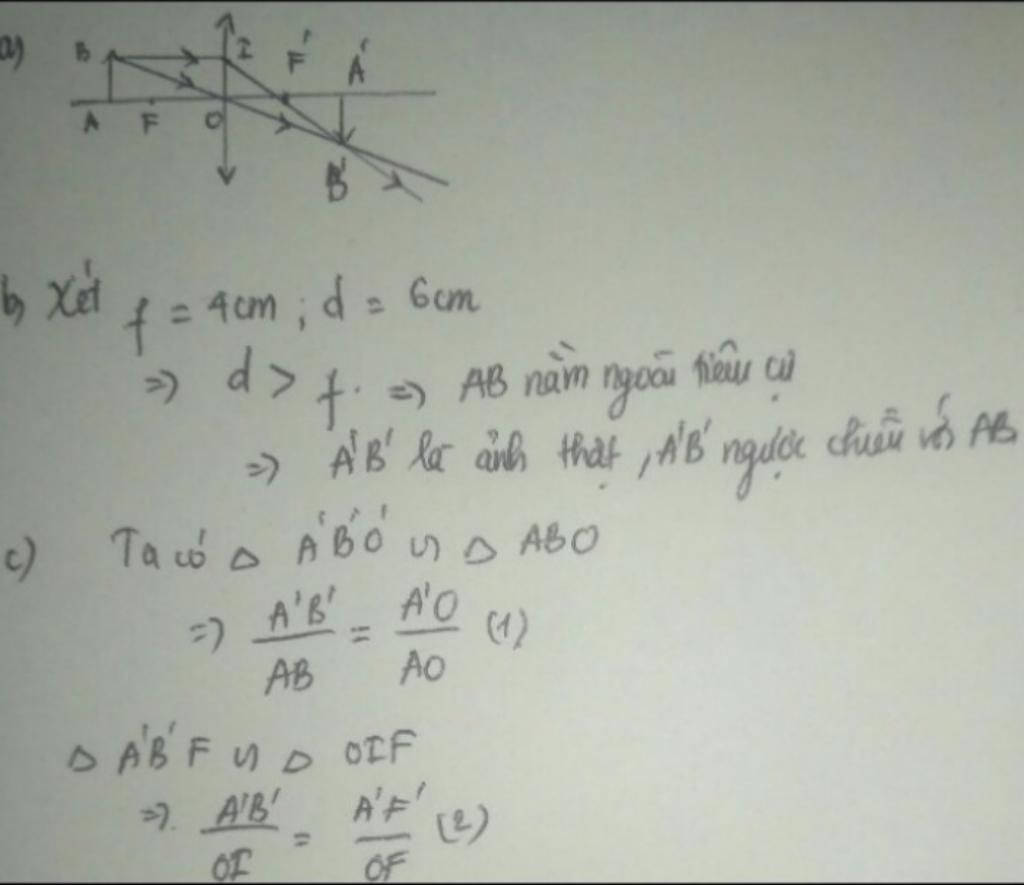 a) B I F' A'
A F O
B'
b) Xét f = 4cm ; d = 6cm
=> d > f. => AB nằm ngoài tiêu cự
=> A'B' là ảnh thật, A'B' ngược chiều với AB
c) Ta có Δ A'B'O' ∽ Δ ABO
=> A'B'/AB = A'O/AO (1)
Δ A'B'F ∽ Δ OIF
=> A'B'/OI = A'F'/OF (2)